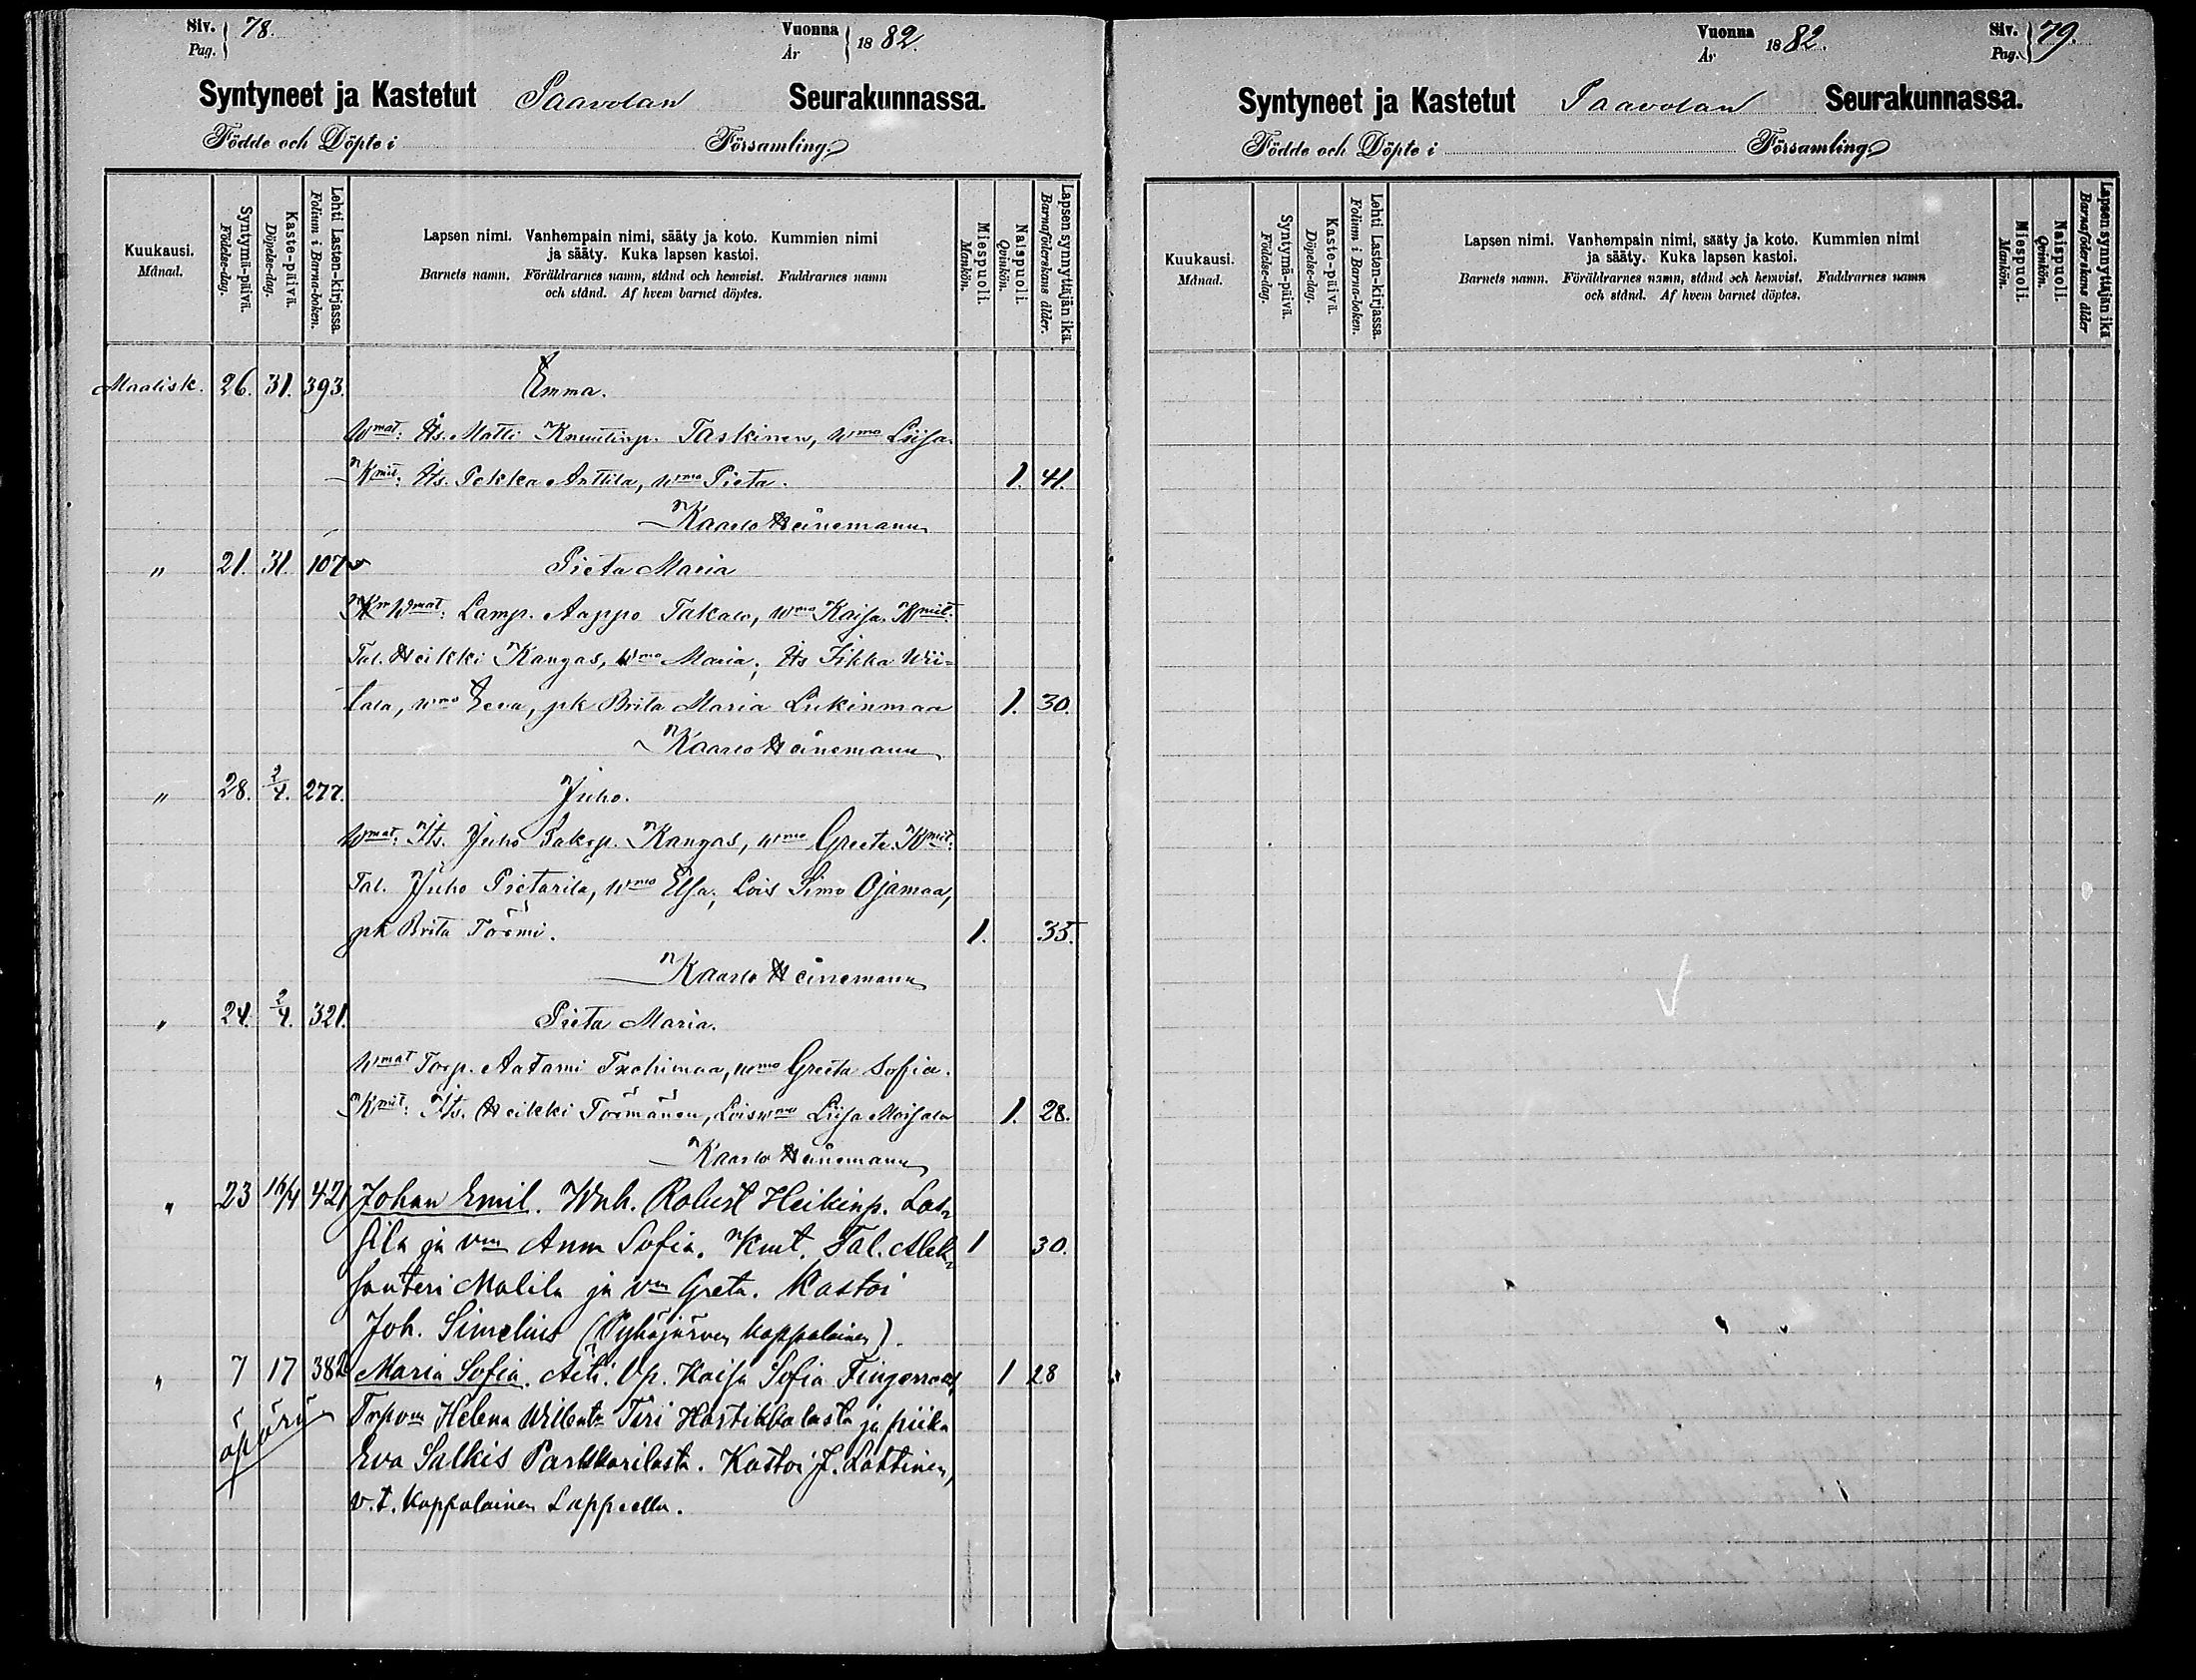 Siv. 78.
Pag.
Vuonna 1882.
År
Syntyneet ja Kastetut Paavolan Seurakunnassa.
Födde och Döpte i Församling.
Kuukausi.
Månad.
Syntymä-päivä.
Födelse-dag.
Kaste-päivä.
Döpelse-dag.
Lehti Lasten-kirjassa.
Folium i Barna-boken.
Lapsen nimi. Vanhempain nimi, sääty ja koto. Kummien nimi
ja sääty. Kuka lapsen kastoi.
Barnets namn. Föräldrarnes namn, stånd och hemvist. Faddrarnes namn
och stånd. Af hvem barnet döptes.
Miespuoli.
Mankön.
Naispuoli.
Qvinkön.
Lapsen synnyttäjän ikä.
Barnaföderskans ålder.
Maalisk. 26. 31. 393. Emma.
Wmat: Its. Matti Knuutinp. Taskinen, wmo Liisa.
Kmit: Its. Pekka Anttila, wmo Pieta. 1. 41.
Kaarlo Heinemann
" 21. 31. 107 Pieta Maria
Wmat: Lamp. Aappo Takalo, wmo Kaisa. Kmit:
Tal. Heikki Kangas, wmo Maria; Its Iikka Wii=
tala, wmo Eeva, pk Brita Maria Lukinmaa 1. 30.
Kaarlo Heinemann
" 28. 2/4. 277. Juho.
Wmat: Its. Juho Jakop. Kangas, wmo Greeta. Kmit:
Tal. Juho Pietarila, wmo Elsa; Lois Simo Ojamaa,
pk Brita Törmi. 1. 35.
Kaarlo Heinemann
" 24. 2/4. 321. Pieta Maria.
Wmat Torp. Aatami wmo Greeta Sofia.
Kmit: Its. Heikki Törmänen, Loiswmo Liisa Moisala 1. 28.
Kaarlo Heinemann
" 23 16/4 421 Johan Emil. Wnh. Robert Heikinp. Las-
sila ja vm Anna Sofia. Kmt. Tal. Alek- 1 30.
santeri Malila ja vm Greta. Kastoi
Joh. Simelius (Pyhäjärven kappalainen).
" 7 17 382 Maria Sofia. Äiti. Kaisa Sofia 1 28
äpärä Helena Hartikkalasta ja piika
Eva Salkis Parkkarilasta. Kastoi J. Lahtinen,
v.t. Kappalainen Lappeella.
Vuonna 1882.
År
Siv. 79.
Pag.
Syntyneet ja Kastetut Paavolan Seurakunnassa.
Födde och Döpte i Församling.
Kuukausi.
Månad.
Syntymä-päivä.
Födelse-dag.
Kaste-päivä.
Döpelse-dag.
Lehti Lasten-kirjassa.
Folium i Barna-boken.
Lapsen nimi. Vanhempain nimi, sääty ja koto. Kummien nimi
ja sääty. Kuka lapsen kastoi.
Barnets namn. Föräldrarnes namn, stånd och hemvist. Faddrarnes namn
och stånd. Af hvem barnet döptes.
Miespuoli.
Mankön.
Naispuoli.
Qvinkön.
Lapsen synnyttäjän ikä
Barnaföderskans ålder